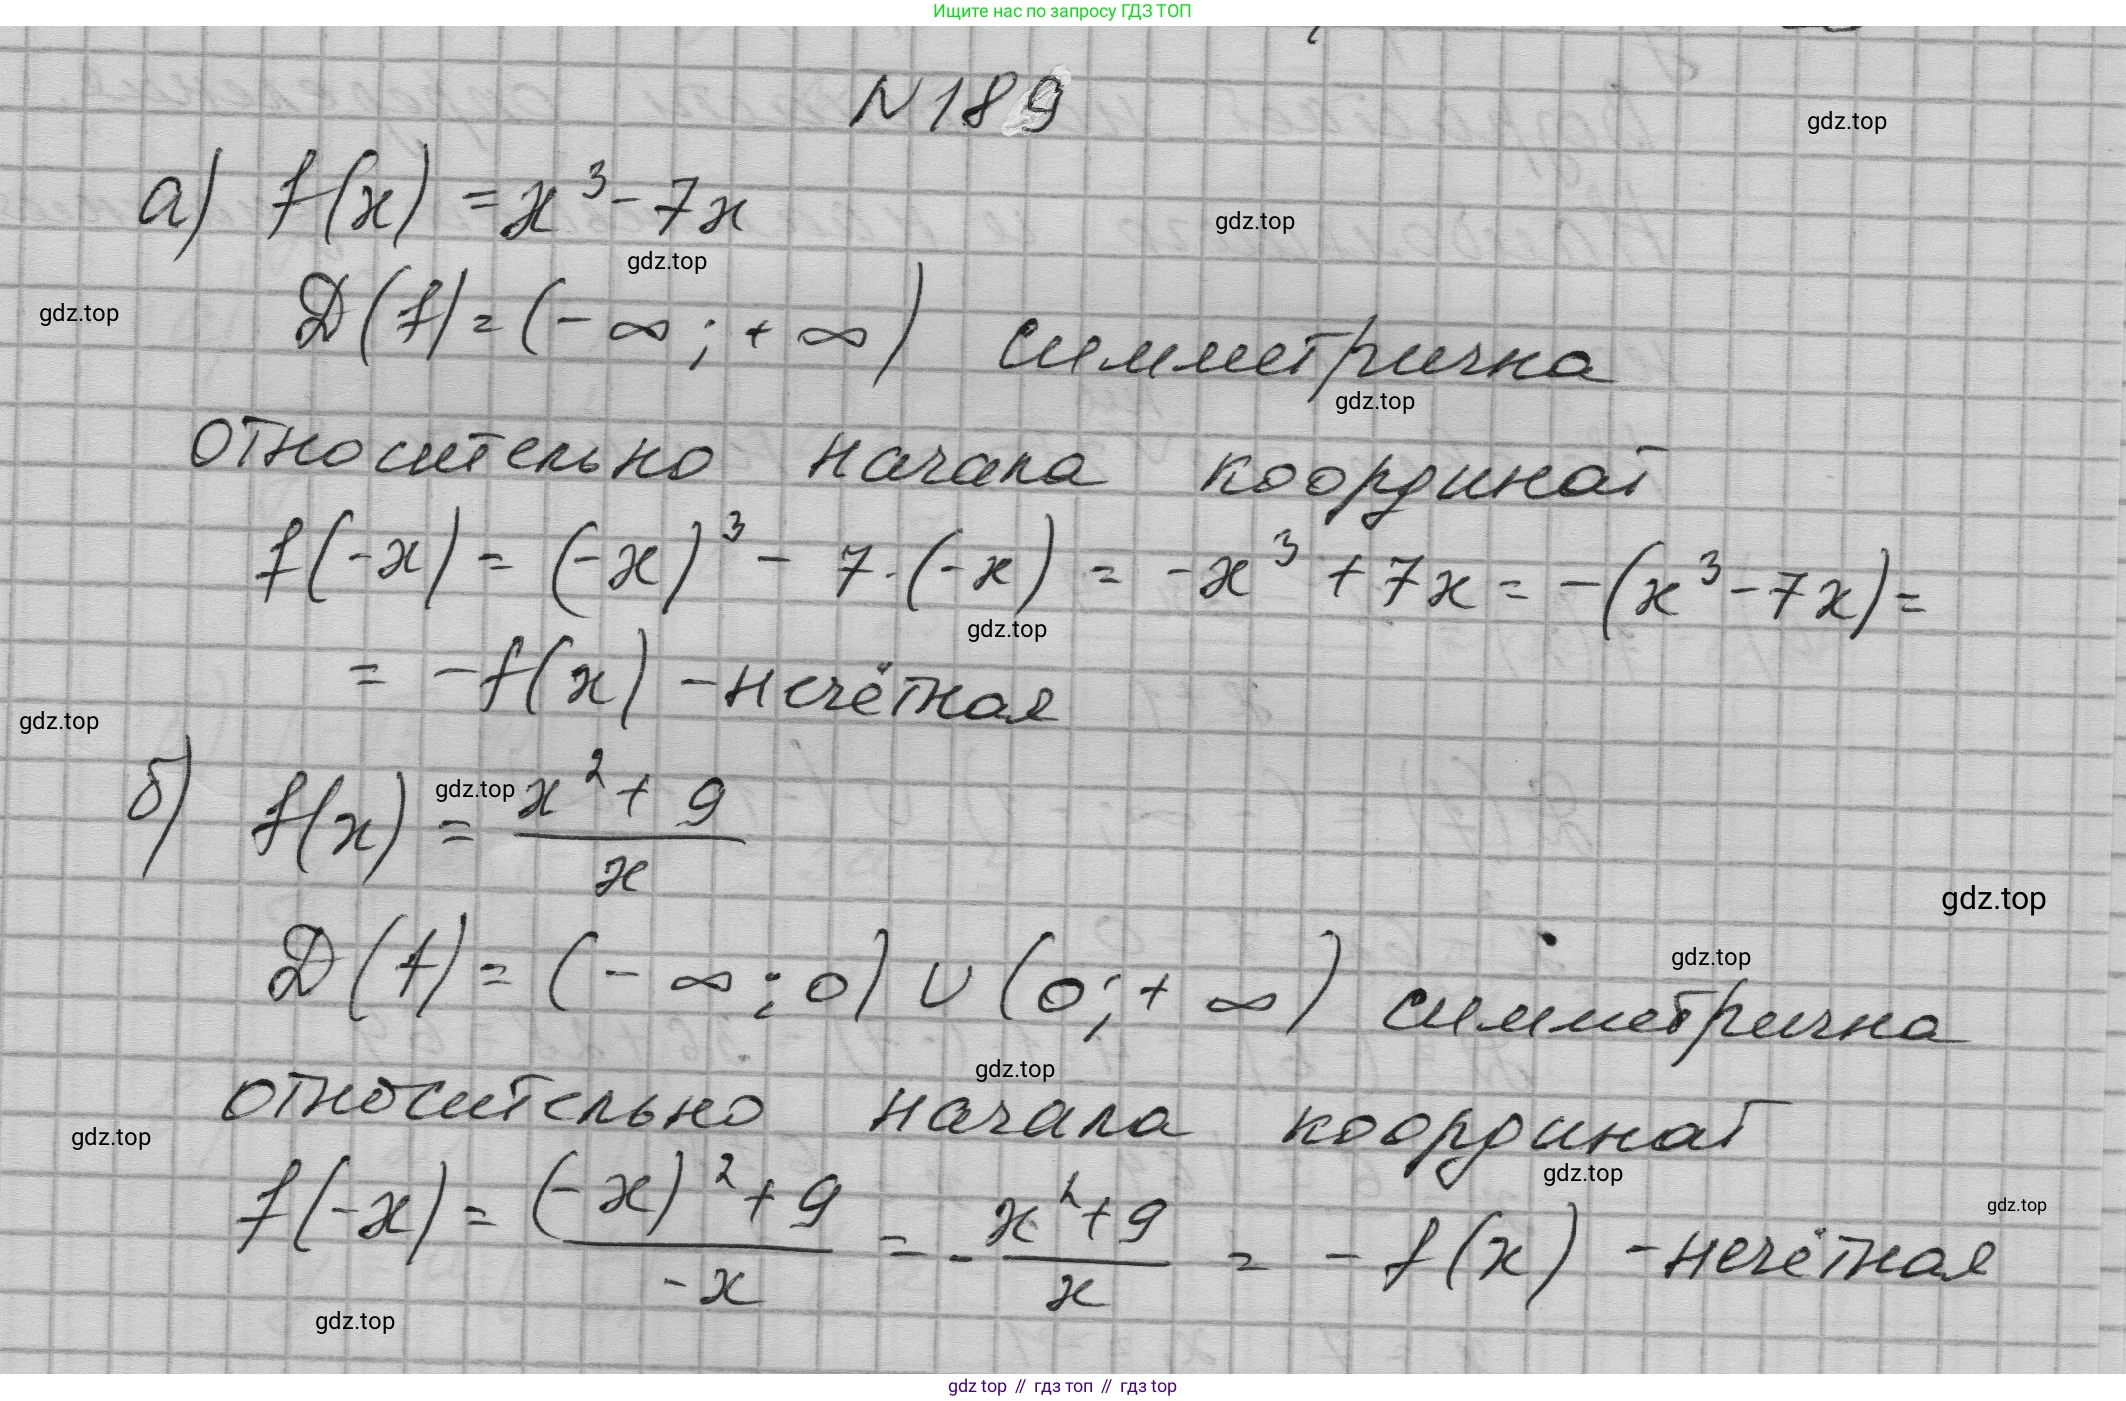 Ищите нас по запросу ГДЗ ТОП
N 189
gdz.top
а) f(x) = x³ - 7x
gdz.top
gdz.top
gdz.top
Д(f) = (-∞; +∞) симметрична
gdz.top
относительно начала координат
f(-x) = (-x)³ - 7·(-x) = -x³ + 7x = -(x³ - 7x) =
gdz.top
= -f(x) - нечётная
gdz.top
б) f(x) = (x² + 9)/x
gdz.top
gdz.top
Д(f) = (-∞; 0) ∪ (0; +∞) симметрична
gdz.top
gdz.top
относительно начала координат
gdz.top
gdz.top
f(-x) = ((-x)² + 9)/(-x) = - (x² + 9)/x = - f(x) - нечётная
gdz.top
gdz.top
gdz top // гдз топ // гдз top